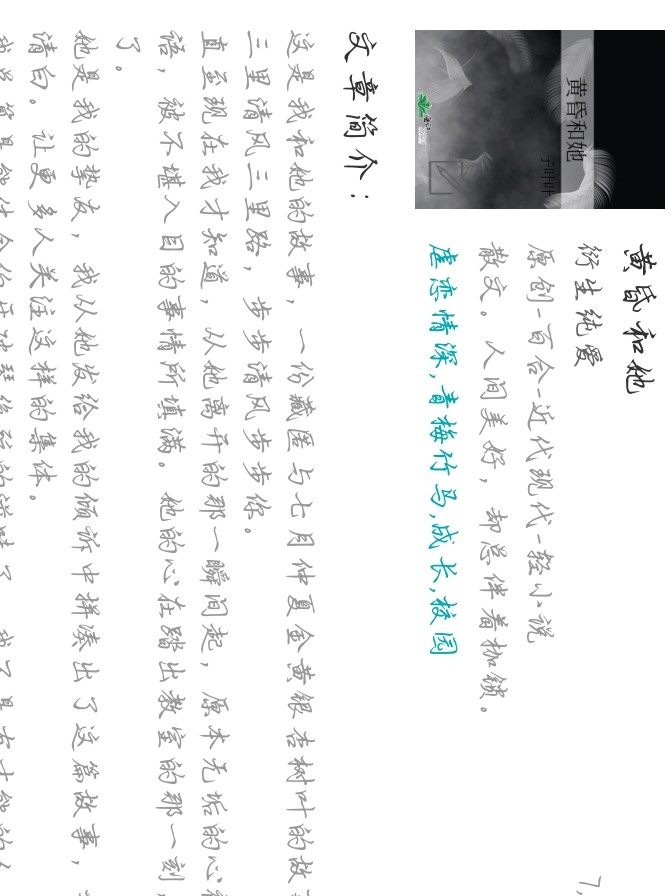 黄昏和她
子叶叶
黄昏和她
衍生纯爱
原创-百合-近代现代-轻小说
散文。人间美好，却总伴着枷锁。
虐恋情深,青梅竹马,成长,校园
7,
文章简介：
这是我和她的故事，一份藏匿与七月仲夏金黄银杏树叶的故
三里清风三里路，步步清风步步你。
直至现在我才知道，从她离开的那一瞬间起，原本无垢的心
语，被不堪入目的事情所填满。她的心在踏出教室的那一刻，
了。
她是我的挚友，我从她发给我的倾诉中拼凑出了这篇故事，
清白。让更多人关注这样的集体。